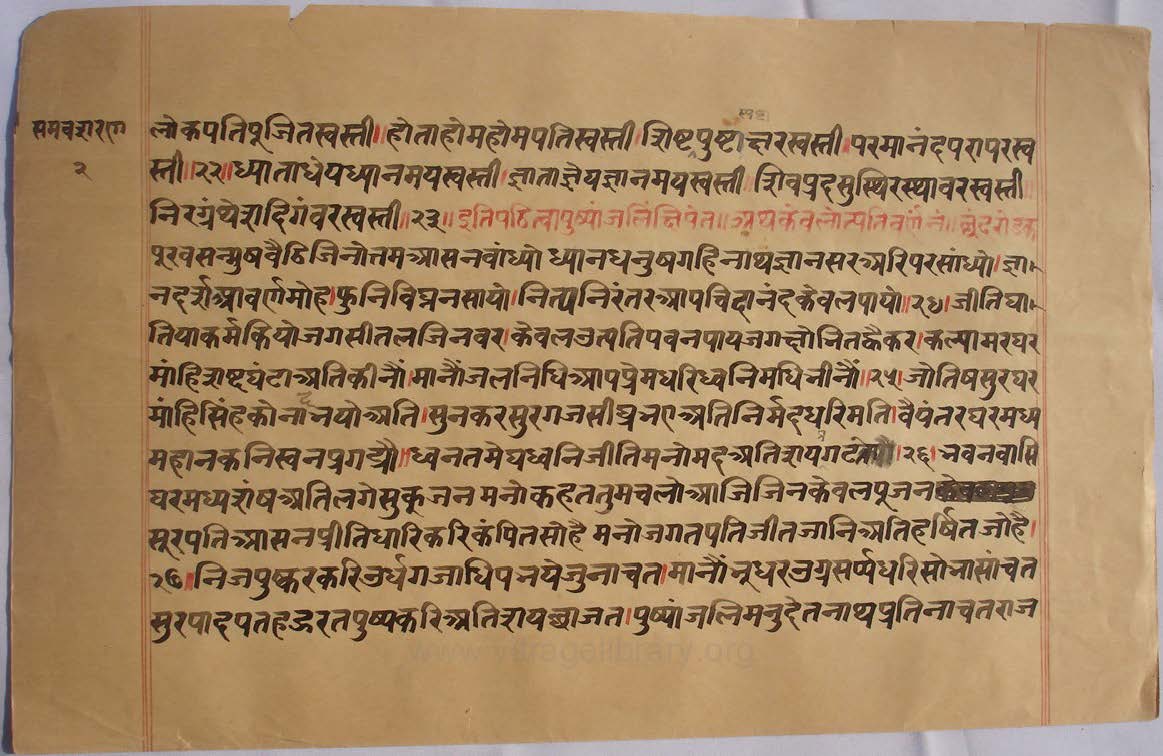 समवशरण
२
स्वष्ट
लोकपतिपूजितस्वस्ती॥होताहोमहोमपतिस्वस्ती।शिष्टपुष्टाक्षरस्वस्ती।परमानंदपरापरस्व
स्ती॥२२॥ध्याताधेयध्यानमयस्वस्ती।ज्ञाताज्ञेयज्ञानमयस्वस्ती।शिवप्रदसुस्थिरस्थावरस्वस्ती
निरग्रंथेशदिगंवरस्वस्ती॥२३॥इतिपठित्वापुष्पांजलिंक्षिपेत॥अथकेवलोत्पतिवर्णनं॥
पूरवसन्मुषवैठिजिनोत्तमआसनवांध्यो।ध्यानधनुषगहिनाथज्ञानसरअरिपरसांध्यो।ज्ञा
नदर्शआवर्णमोह।फुनिविघ्ननसायो।नित्यनिरंतरआपचिदानंदकेवलपायो॥२४।जीतिघा
तियाकर्मकियोजगसीतलजिनवर।केवलउत्पतिपवनपायजगक्षोनितह्वैकर।कल्पामरघर
मांहिशष्टघंटाअतिकीनौं।मानौंजलनिधिआपप्रेमधरिध्वनिमधिनीनौं॥२५।जोतिषसुरघर
मांहिसिंहकोनादनयोअति।सुनकरसुरगजसीघ्रनएअतिनिर्मदधरिमति।वैपंतरघरमध्य
महानकनिस्वनप्रगट्यौ॥ध्वनतमेघध्वनिजीतिमनोमदअतिशय।२६।नवनवासि
घरमध्यशंषअतिलगेसुकूजनमनोकहततुमचलोआजिजिनकेवलपूजन
सूरपतिआसनप्रीतिधारिकरिकंपितसोहै मनोजगतपतिजीतजानिअतिहर्षितजोहै।
२७॥निजपुष्करकरिउर्धगजाधिपनयेजुनाचत।मानौंनूधरउग्रसर्प्पधरिसोनासांचत
सुरपादपतहडरतपुष्पकरिअतिशयछाजत।पुष्पांजलिमनुदेतनाथप्रतिनाचतराज
www.vitragelibrary.org